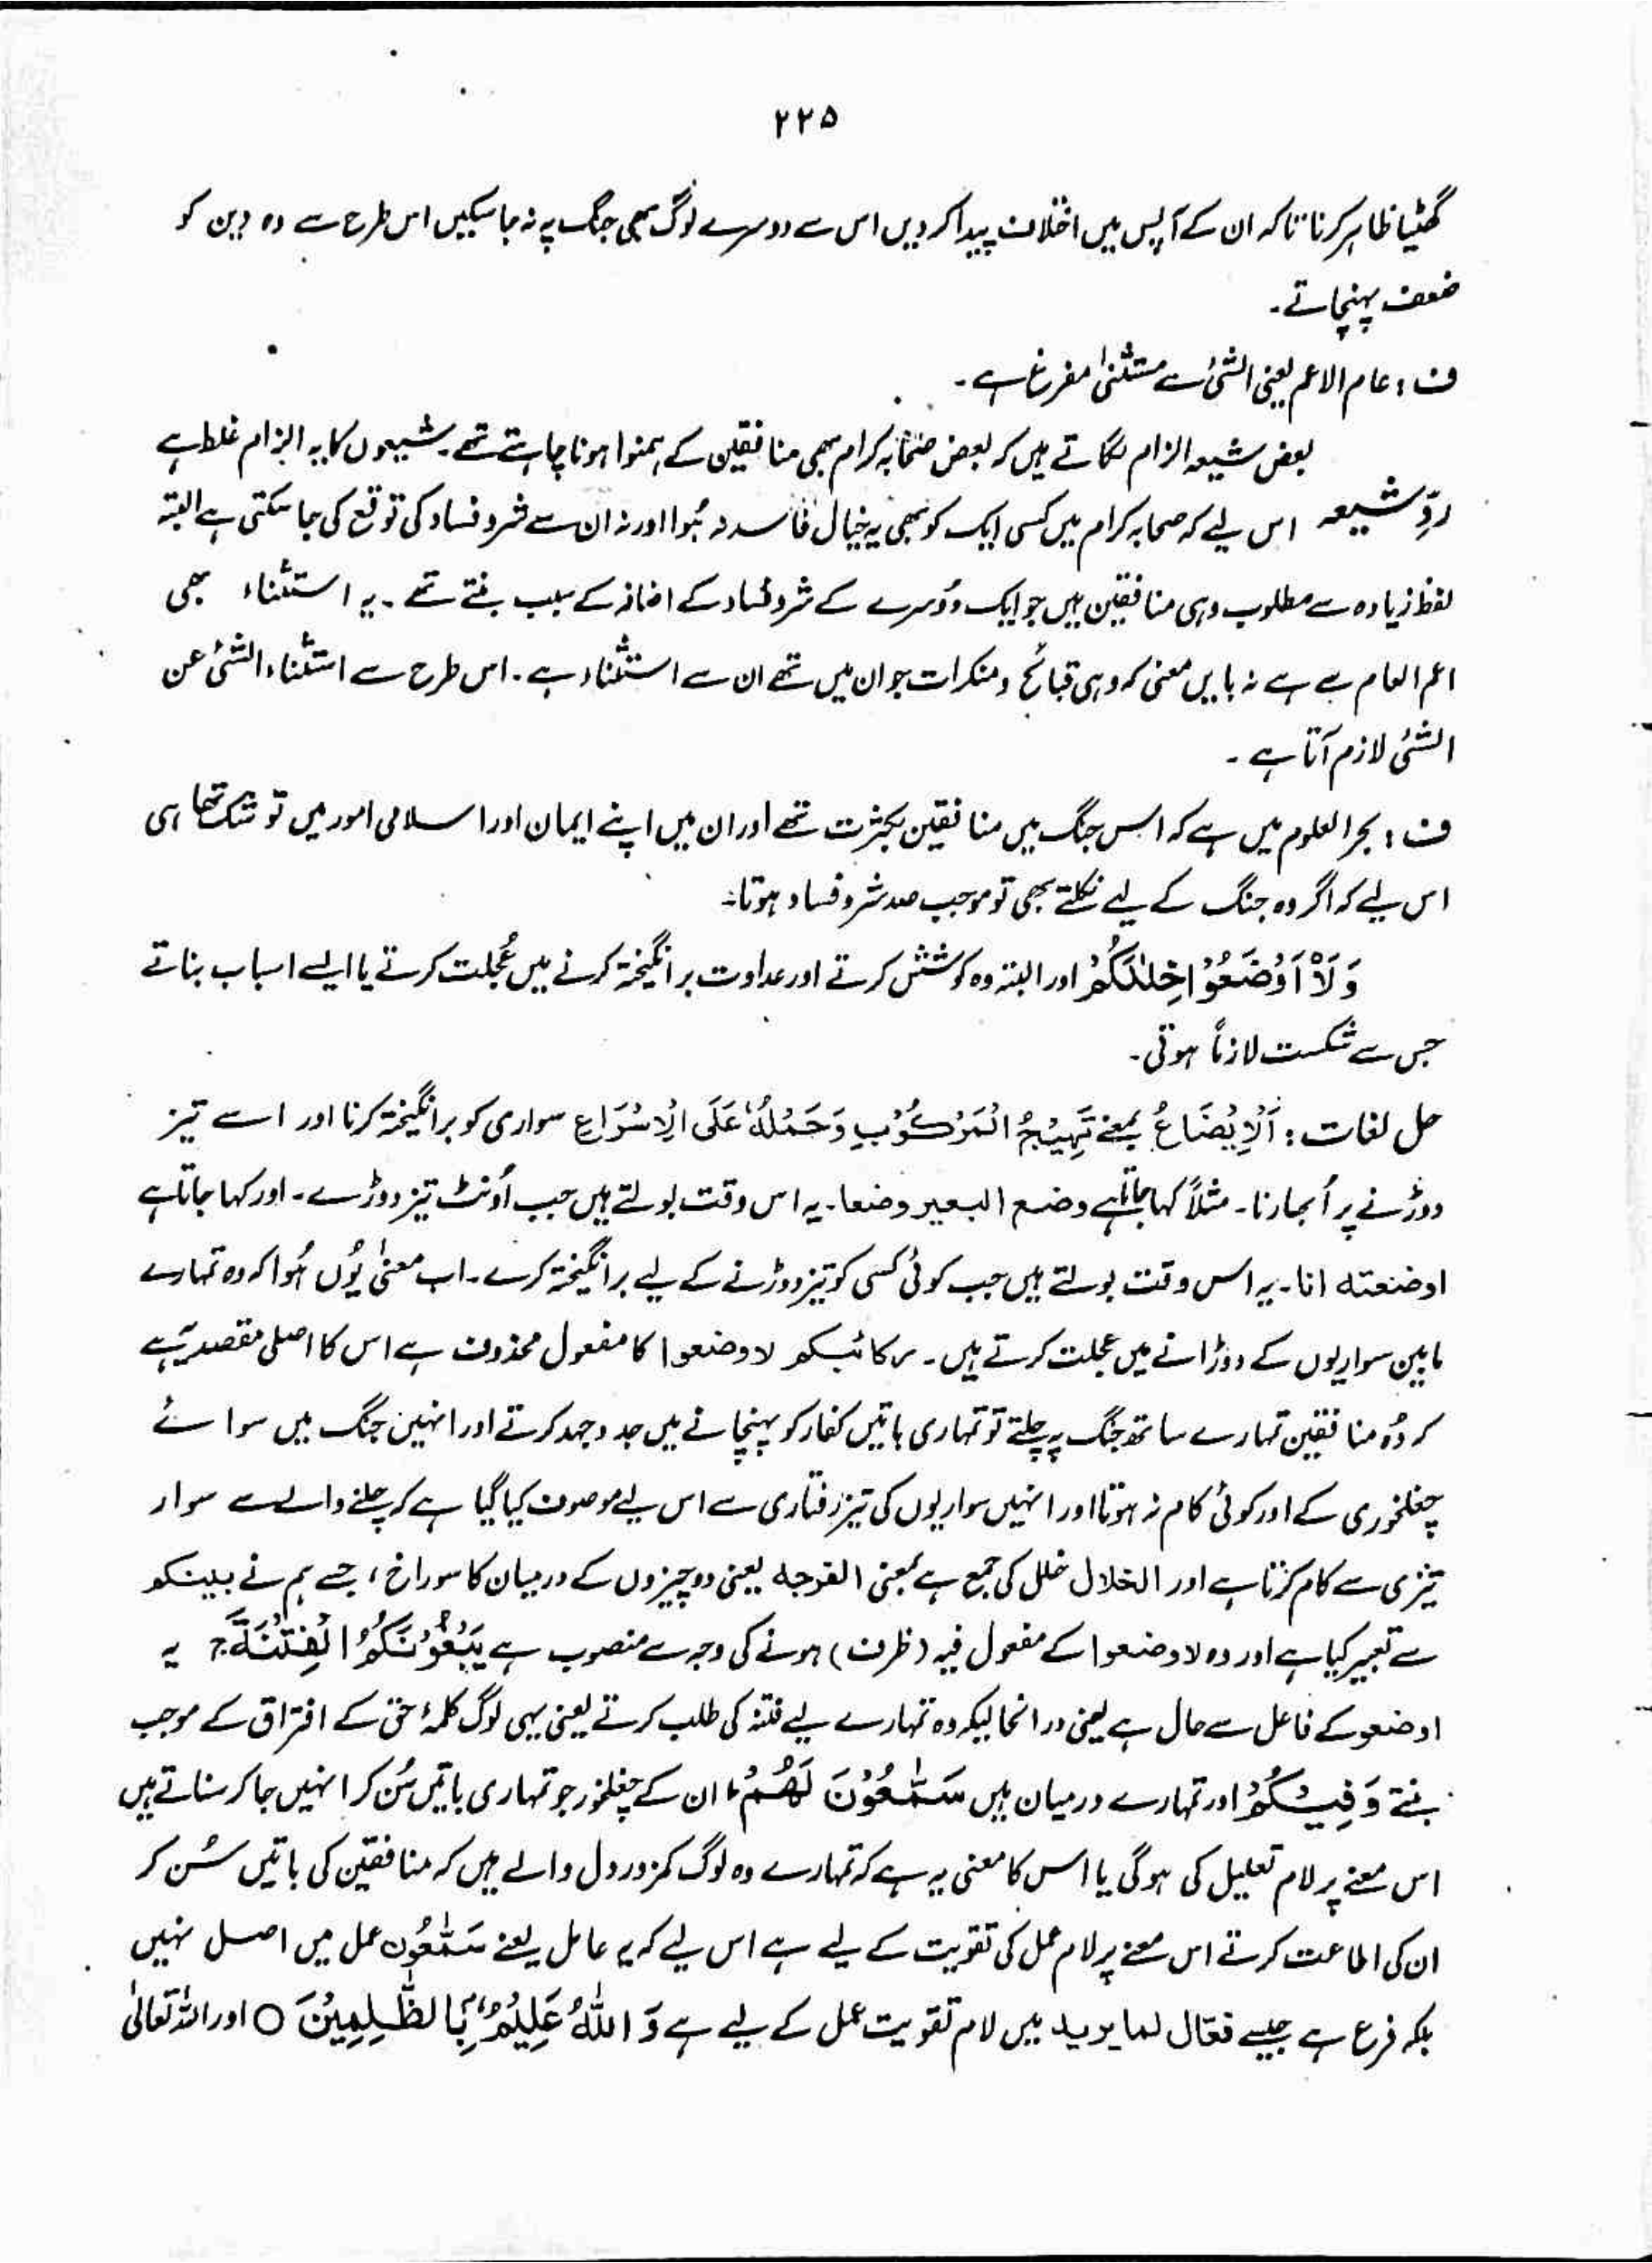 ۲۲۵
گھٹیا ظاہر کرنا تاکہ ان کے آپس میں اختلاف پیدا کر دیں اس سے دوسرے لوگ بھی جنگ پہ نہ جا سکیں اس طرح سے وہ دین کو
ضعف پہنچاتے۔
ف : عام الاعم یعنی الشئ سے مستثنیٰ مفرغ ہے۔
بعض شیعہ الزام لگاتے ہیں کہ بعض صحابہ کرام بھی منافقین کے ہمنوا ہونا چاہتے تھے۔ شیعوں کا یہ الزام غلط ہے
ردِّ شیعہ اس لیے کہ صحابہ کرام میں کسی ایک کو بھی یہ خیال فاسد نہ ہُوا اور نہ ان سے شر و فساد کی توقع کی جا سکتی ہے البتہ
لفظ زیادہ سے مطلوب وہی منافقین ہیں جو ایک دوُسرے کے شر و فساد کے اضافہ کے سبب بنتے تھے۔ یہ استثناء بھی
اعم العام سے ہے نہ بایں معنی کہ وہی قبائح و منکرات جو ان میں تھے ان سے استثناء ہے۔ اس طرح سے استثناء الشئ عن
الشئ لازم آتا ہے۔
ف : بحر العلوم میں ہے کہ اس جنگ میں منافقین بکثرت تھے اور ان میں اپنے ایمان اور اسلامی امور میں تو شک تھا ہی
اس لیے کہ اگر وہ جنگ کے لیے نکلتے بھی تو موجب صد شر و فساد ہوتا۔
وَلَاْ اَوْضَعُوْا خِلٰلَكُمْ اور البتہ وہ کوشش کرتے اور عداوت برانگیختہ کرنے میں عُجلت کرتے یا ایسے اسباب بناتے
جس سے شکست لازماً ہوتی۔
حل لغات : اَلْاِیْضَاعُ بمعنے تَہِیْجُ الْمَرْکُوْبِ وَحَمْلُهٗ عَلَی الْاِسْرَاعِ سواری کو برانگیختہ کرنا اور اسے تیز
دوڑنے پر اُبھارنا۔ مثلاً کہا جاتا ہے وضع البعیر وضعا۔ یہ اس وقت بولتے ہیں جب اُونٹ تیز دوڑے۔ اور کہا جاتا ہے
اوضعته انا۔ یہ اس وقت بولتے ہیں جب کوئی کسی کو تیز دوڑنے کے لیے برانگیختہ کرے۔ اب معنیٰ یُوں ہُوا کہ وہ تمہارے
مابین سواریوں کے دوڑانے میں عجلت کرتے ہیں۔ رکائبکم لاوضعوا کا مفعول محذوف ہے اس کا اصلی مقصد یہ ہے
کہ وُہ منافقین تمہارے ساتھ جنگ پہ چلتے تو تمہاری باتیں کفار کو پہنچانے میں جدوجہد کرتے اور انہیں جنگ میں سوائے
چغلخوری کے اور کوئی کام نہ ہوتا اور انہیں سواریوں کی تیز رفتاری سے اس لیے موصوف کیا گیا ہے کہ چلنے والے سے سوار
تیزی سے کام کرتا ہے اور الخلال خلل کی جمع ہے بمعنی الفرجه یعنی دو چیزوں کے درمیان کا سوراخ ، جسے ہم نے بینکم
سے تعبیر کیا ہے اور وہ لاوضعوا کے مفعول فیہ (ظرف) ہونے کی وجہ سے منصوب ہے یَبْغُوْنَکُمُ الْفِتْنَةَ ۚ یہ
اوضعو کے فاعل سے حال ہے یعنی درانحالیکہ وہ تمہارے لیے فتنہ کی طلب کرتے یعنی یہی لوگ کلمۂ حق کے افتراق کے موجب
بنتے وَفِیْکُمْ اور تمہارے درمیان ہیں سَمّٰعُوْنَ لَهُمْ ؕ ان کے چغلخور جو تمہاری باتیں سُن کر انہیں جا کر سناتے ہیں
اس معنے پر لام تعلیل کی ہو گی یا اس کا معنی یہ ہے کہ تمہارے وہ لوگ کمزور دل والے ہیں کہ منافقین کی باتیں سُن کر
ان کی اطاعت کرتے اس معنے پر لام عمل کی تقویت کے لیے ہے اس لیے کہ یہ عامل یعنے سَمّٰعُون عمل میں اصل نہیں
بلکہ فرع ہے جیسے فعّال لما یرید میں لام تقویت عمل کے لیے ہے وَاللّٰهُ عَلِیْمٌۢ بِالظّٰلِمِیْنَ ○ اور اللہ تعالیٰ